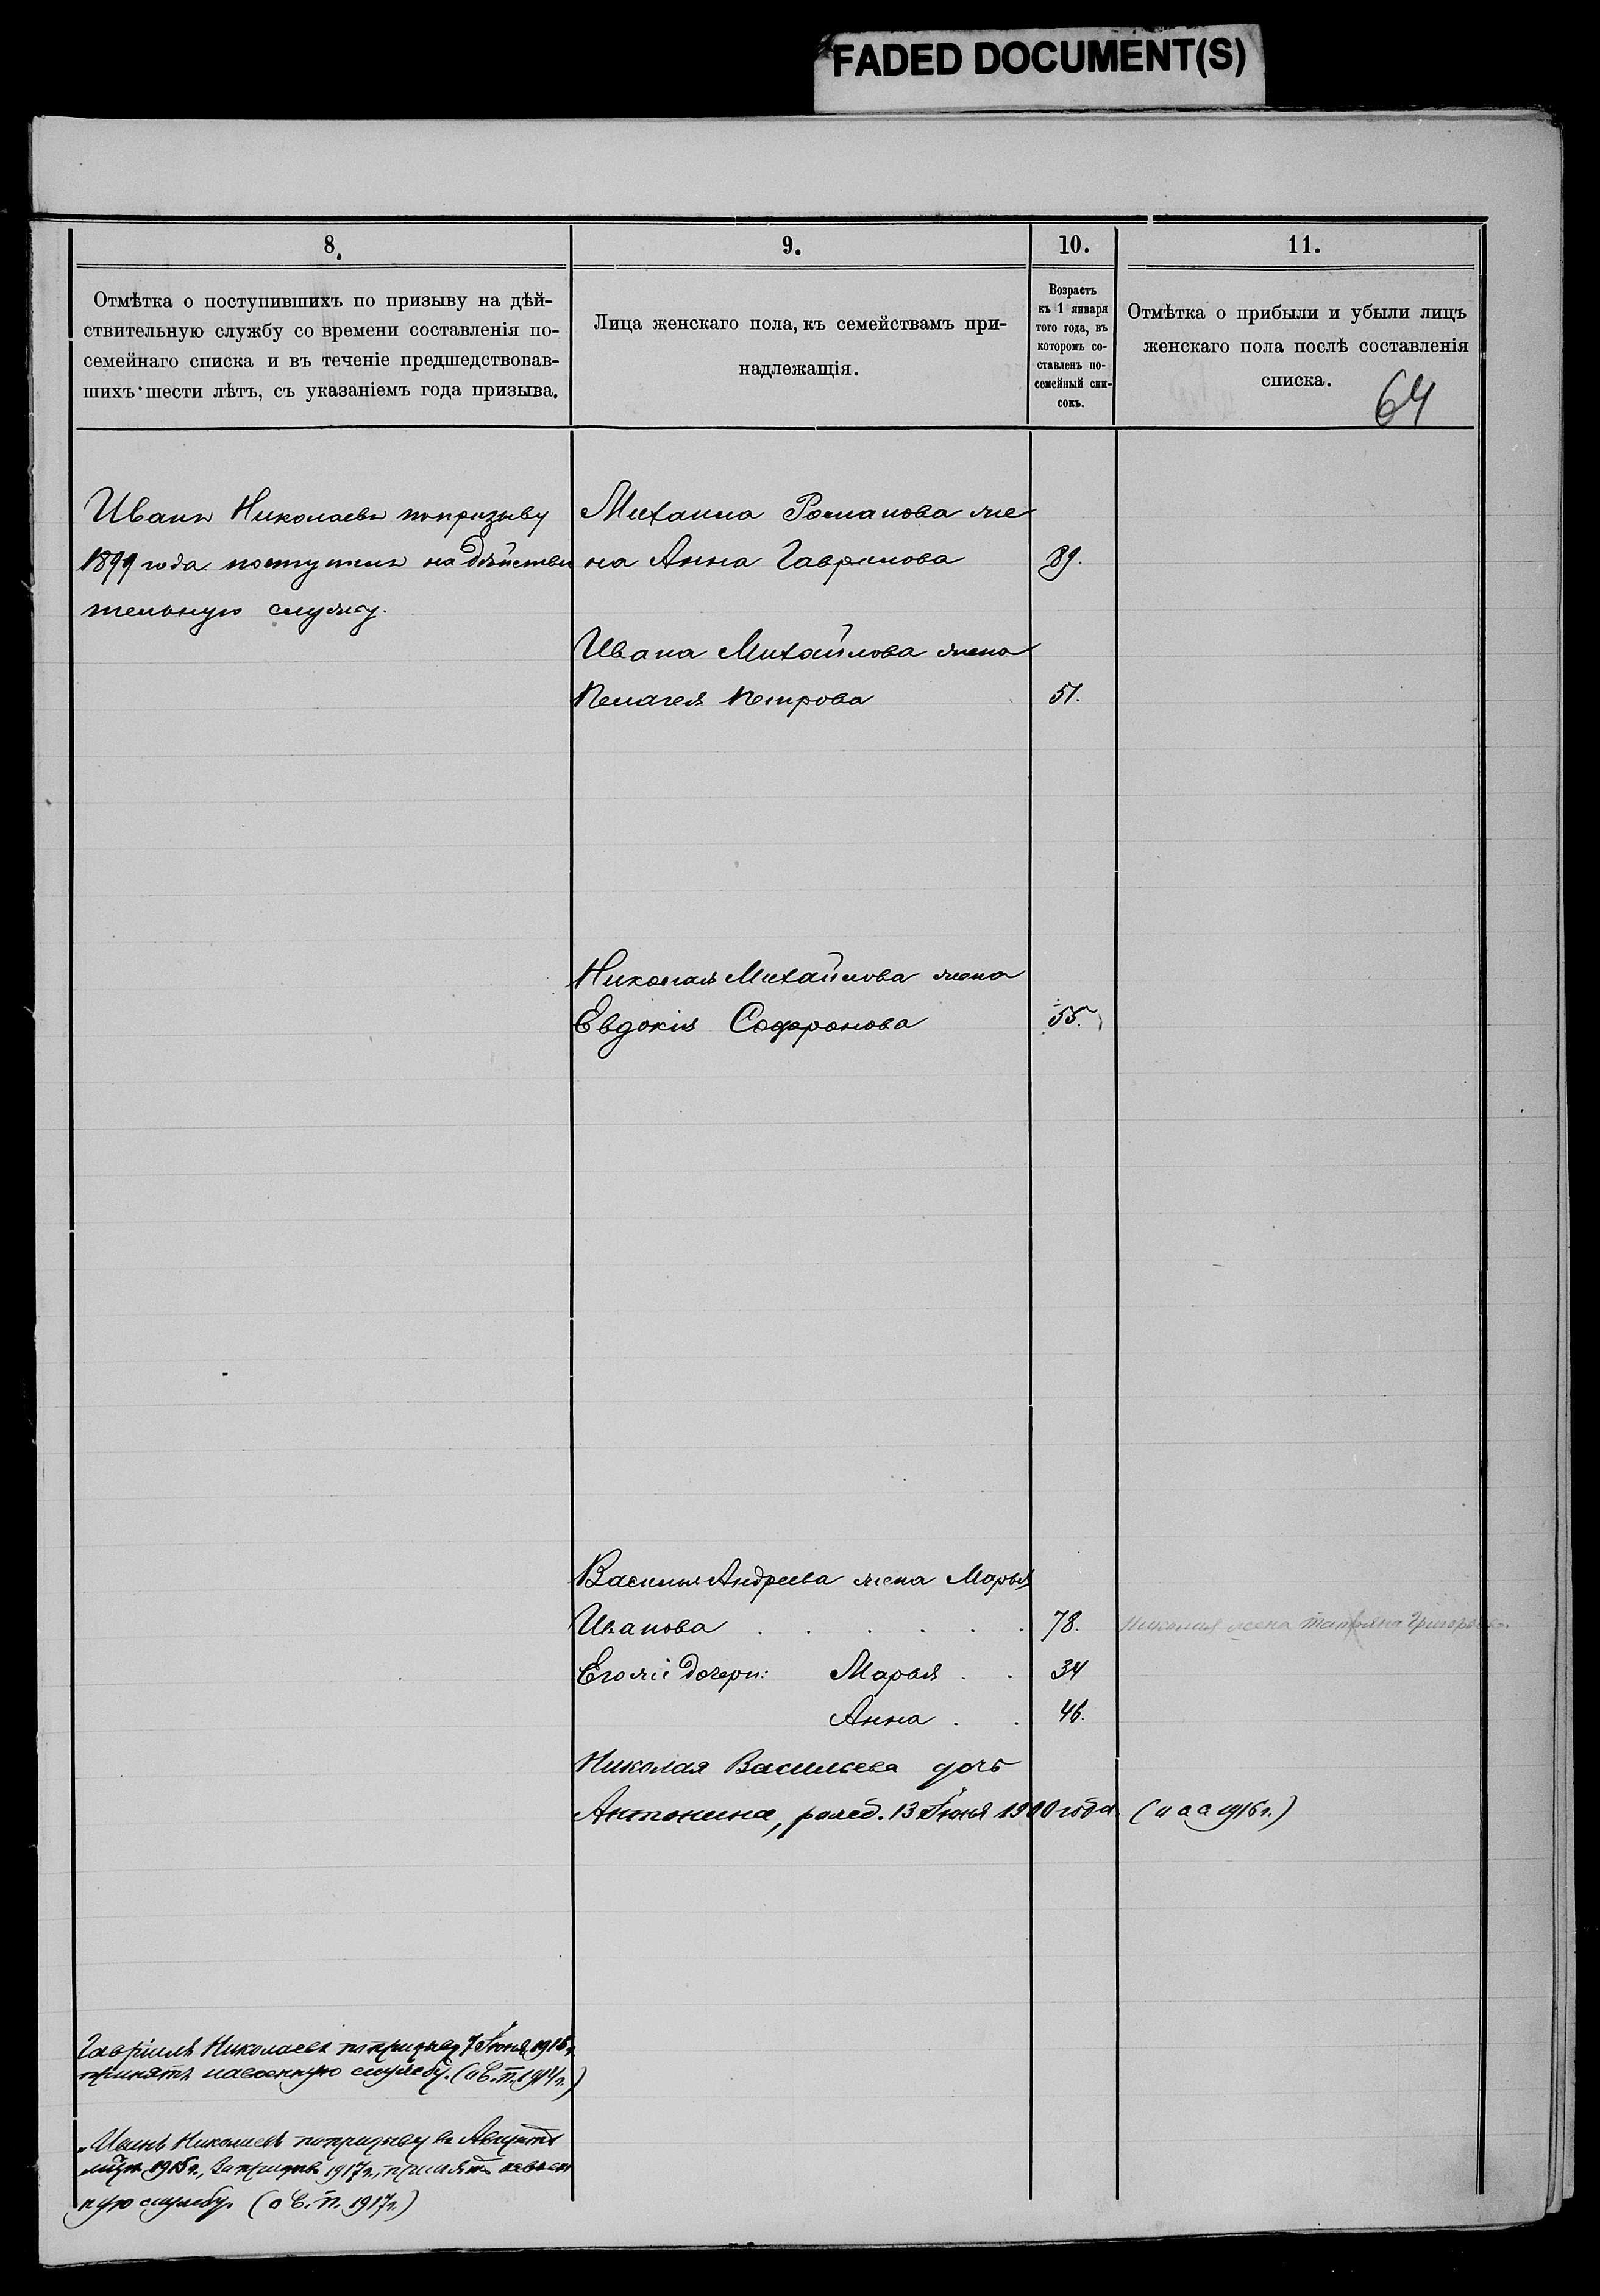 FADED DOCUMENT(S)
8.
Отмѣтка о поступившихъ по призыву на дѣй-
ствительную службу со времени составленія по-
семейнаго списка и въ теченіе предшедствовав-
шихъ шести лѣтъ, съ указаніемъ года призыва.
9.
Лица женскаго пола, къ семействамъ при-
надлежащія.
10.
Возрастъ
къ 1 января
того года, въ
которомъ со-
ставленъ по-
семейный спи-
сокъ.
11.
Отмѣтка о прибыли и убыли лицъ
женскаго пола послѣ составленія
списка.
64
Иванъ Николаевъ по призыву
1899 года поступилъ на дѣйстви
тельную службу.
Михаила Романова же
на Анна Гаврилова 89.
Ивана Михайлова жена
Пелагея Петрова 51.
Николая Михайлова жена
Евдокія Софронова 55.
Василья Андреева жена Марья
Иванова . . . . . . 78. Николая жена Татьяна
Его же дочери: Марья . . 34
Анна . . 46.
Николая Васильева дочь
Антонина, рожд. 13 Іюня 1900 года (1916 г.)
Гавріилъ Николаевъ по призыву 7 Іюня 1915 г.
принятъ на военную службу. (о в. п. 1914 г.)
Иванъ Николаевъ по призыву въ Августѣ
1915 г., 1917 г., принятъ на воен
ную службу. (о в. п. 1917 г.)